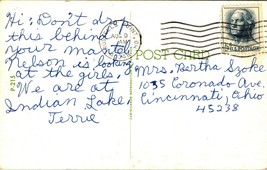 Hi: Don't drop
this behind
your mantel
Nelson is looking
at the girls.
We are at
Indian Lake,
Terrie
POST CARD
Mrs. Bertha Szoke
1035 Coronado Ave.
Cincinnati, Ohio
45238
P-215